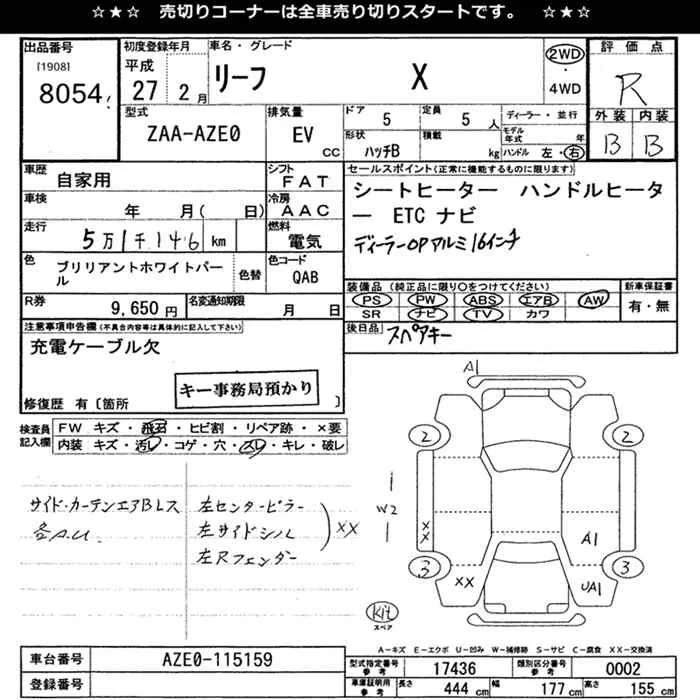 ☆★☆ 売切りコーナーは全車売り切りスタートです。 ☆★☆
出品番号
[1908]
8054
初度登録年月
平成
27 2月
車名・グレード
リーフ X
2WD
・
4WD
評価点
R
外装 内装
B B
型式
ZAA-AZE0
排気量
EV
CC
ドア
5
定員
5 人
形状
ハッチB
積載
kg
ディーラー・並行
モデル年式 年
ハンドル 左・右
車歴
自家用
シフト
FAT
車検
年 月( 日)
冷房
AAC
走行
5万1千146 km
燃料
電気
色
ブリリアントホワイトパール
色替
色コード
QAB
セールスポイント(正常に機能するものに限ります)
シートヒーター ハンドルヒータ
ー ETC ナビ
ディーラーOPアルミ16インチ
装備品(純正品に限り○をつけてください)
PS PW ABS エアB AW
SR ナビ TV カワ
新車保証書
有・無
R券
9,650 円
名変通知期限
月 日
後日品
スペアキー
注意事項申告欄(不具合内容等は具体的に記入して下さい)
充電ケーブル欠
キー事務局預かり
修復歴 有〔箇所 〕
検査員
記入欄
FW キズ・飛石・ヒビ割・リペア跡・×要
内装 キズ・汚レ・コゲ・穴・スレ・キレ・破レ
サイド・カーテンエアBレス
各A.U.
左センターピラー
左サイドシル
左Rフェンダー
XX
W2
A1
2 2
XX
A1
3 3
XX
UA1
Kit
スペア
A-キズ E-エクボ U-凹み W-補修跡 S-サビ C-腐食 XX-交換済
車台番号
AZE0-115159
登録番号
型式指定番号
参考
17436
類別区分番号
参考
0002
車庫証明用
参考
長さ 444 cm
幅 177 cm
高さ 155 cm